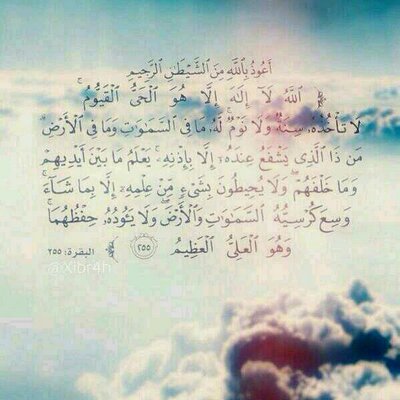 أَعُوذُ بِاللَّهِ مِنَ الشَّيْطَٰنِ الرَّجِيمِ
﴿ ٱللَّهُ لَآ إِلَٰهَ إِلَّا هُوَ ٱلْحَىُّ ٱلْقَيُّومُ ۚ
لَا تَأْخُذُهُۥ سِنَةٌ وَلَا نَوْمٌ ۚ لَّهُۥ مَا فِى ٱلسَّمَٰوَٰتِ وَمَا فِى ٱلْأَرْضِ ۗ
مَن ذَا ٱلَّذِى يَشْفَعُ عِندَهُۥٓ إِلَّا بِإِذْنِهِۦ ۚ يَعْلَمُ مَا بَيْنَ أَيْدِيهِمْ
وَمَا خَلْفَهُمْ ۖ وَلَا يُحِيطُونَ بِشَىْءٍ مِّنْ عِلْمِهِۦٓ إِلَّا بِمَا شَآءَ ۚ
وَسِعَ كُرْسِيُّهُ ٱلسَّمَٰوَٰتِ وَٱلْأَرْضَ ۖ وَلَا يَـُٔودُهُۥ حِفْظُهُمَا ۚ
وَهُوَ ٱلْعَلِىُّ ٱلْعَظِيمُ ٢٥٥ ﴾ البقرة: ٢٥٥
@Xibr4h